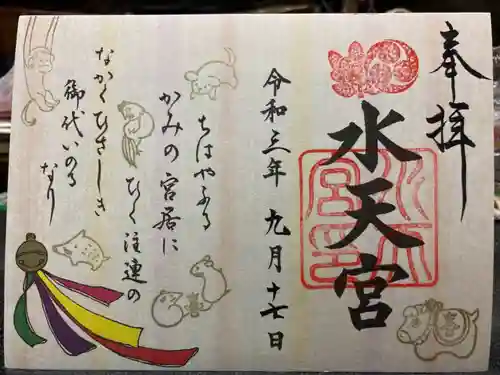 奉拝
水天宮
令和三年 九月十七日
ちはやふる
かみの宮居に
ひく注連の
なかくひさしき
御代いのる
なり